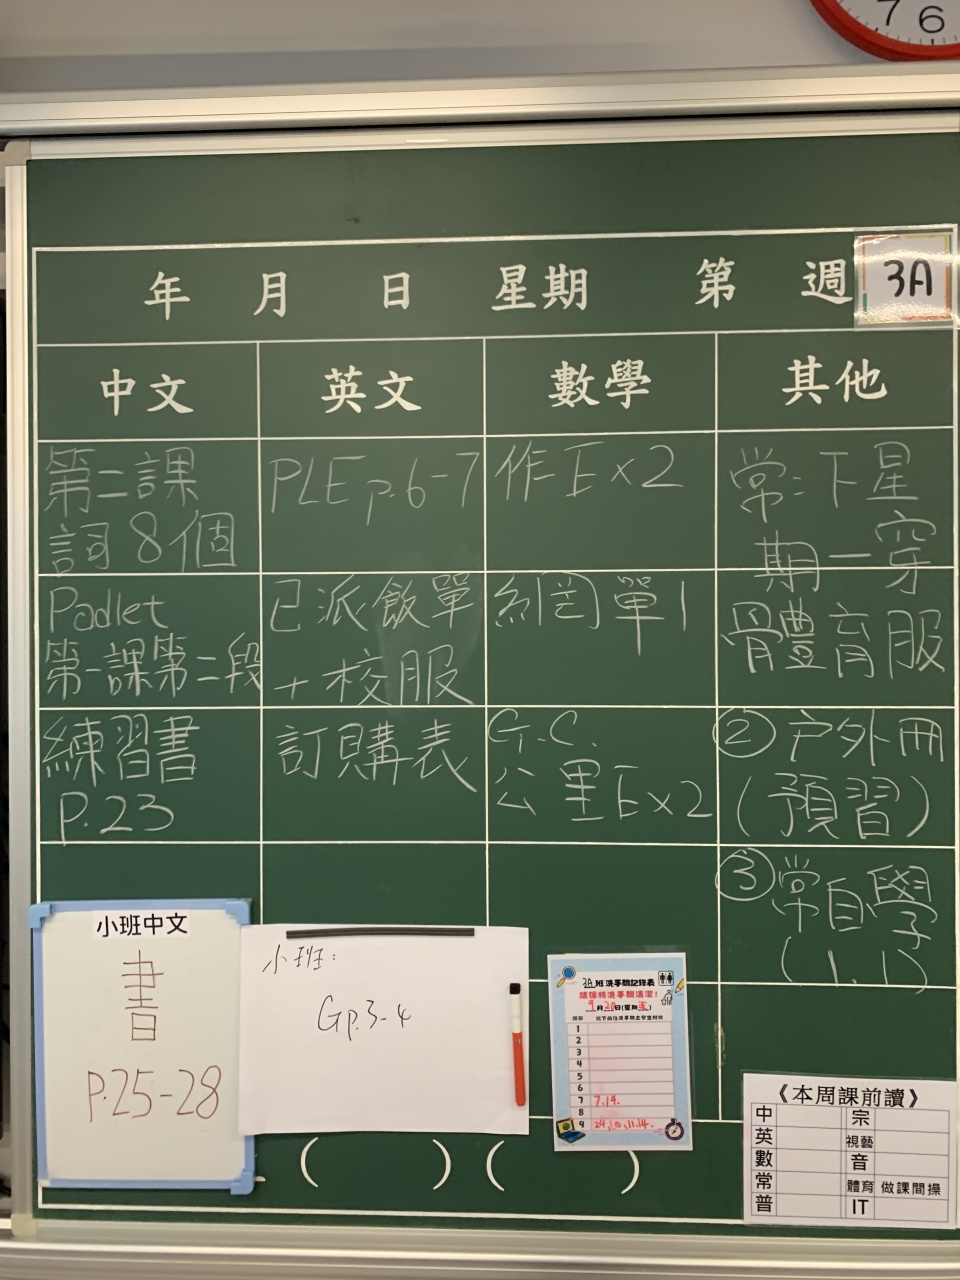 7 6
年 月 日 星期 第 週
3A
中文 英文 數學 其他
第二課
詞8個
PLE p.6-7
作E×2
常:下星
期一穿
體育服
Padlet
第一課第二段
已派飯單
+校服
網單1
練習書
P.23
訂購表
G.C.
公里E×2
②戶外冊
(預習)
③常自學
(1.1)
小班中文
書
P.25-28
小班:
Gp.3-4
3A班洗手間記錄表
請保持洗手間清潔!
1
2
3
4
5
6
7 7.19.
8
9
( ) ( )
《本周課前讀》
中 宗
英 視藝
數 音
常 體育 做課間操
普 IT